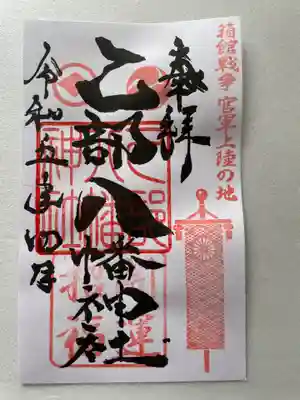 箱館戦争 官軍上陸の地
奉拝
乙部八幡神社
令和五年四月
乙部
八幡
神社